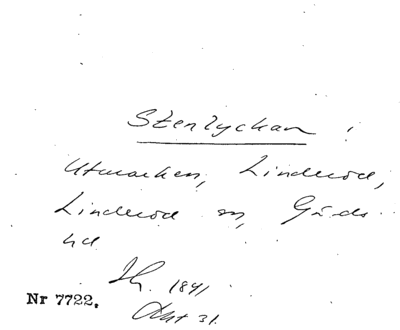 Stenlyckan i
Utmarken, Linderöd,
Linderöd sn, Gärds
hd
Th. 1841
Akt 31.
Nr 7722.